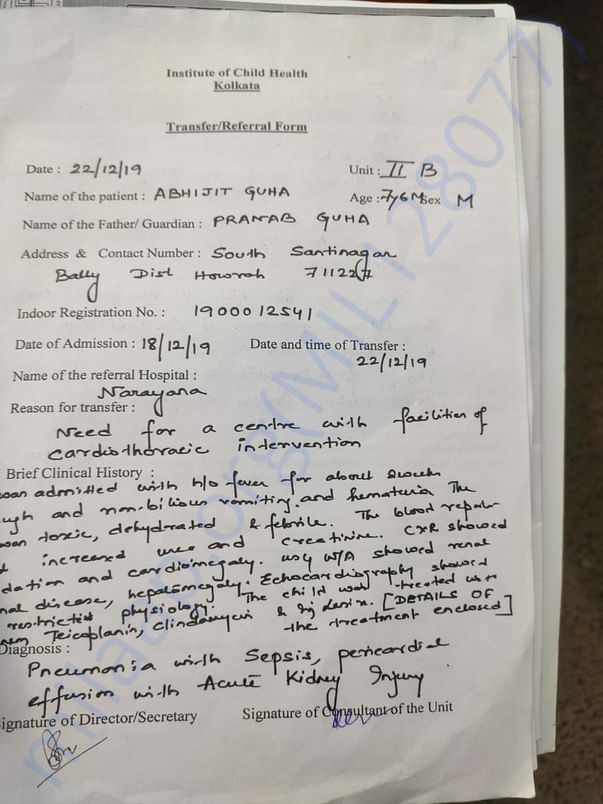 Institute of Child Health
Kolkata
Transfer/Referral Form
Date : 22/12/19 Unit : II B
Name of the patient : ABHIJIT GUHA Age : 7y6M Sex M
Name of the Father/ Guardian : PRANAB GUHA
Address & Contact Number : South Santinagar
Bally Dist Howrah 711227
Indoor Registration No. : 1900012541
Date of Admission : 18/12/19 Date and time of Transfer :
22/12/19
Name of the referral Hospital :
Narayana
Reason for transfer :
Need for a centre with facilities of
cardiothoracic intervention
Brief Clinical History :
admitted with h/o fever for about
and non-bilious vomiting and hematuria The
toxic, dehydrated & febrile. The blood
increased urea and creatinine. CXR showed
and cardiomegaly. USG W/A showed renal
disease, hepatomegaly. Echocardiography showed
restrictive physiology. The child was treated
Teicoplanin, Clindamycin & Inj Lasix. [DETAILS OF
the treatment enclosed]
Diagnosis :
Pneumonia with Sepsis, pericardial
effusion with Acute Kidney Injury
Signature of Director/Secretary Signature of Consultant of the Unit
milaap.org(MIL128077)